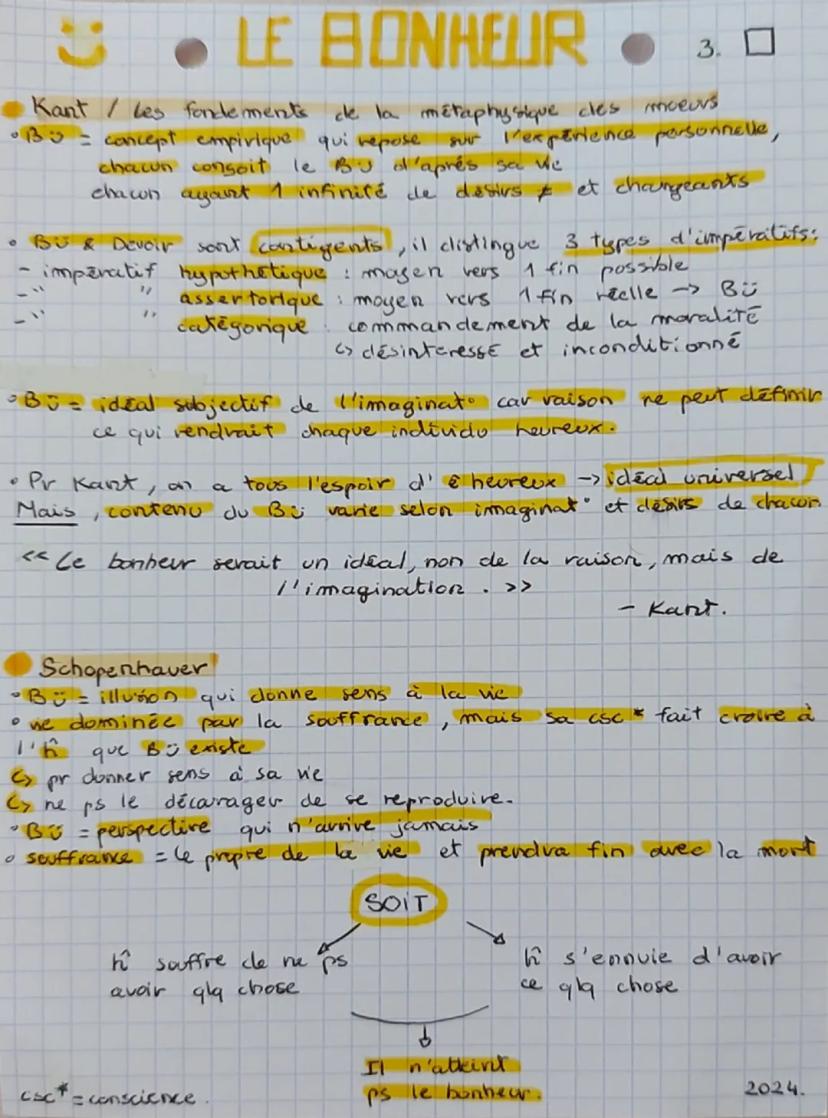 LE BONHEUR
3.
Kant / Les fondements de la métaphysique des moeurs
Bü = concept empirique qui repose sur l'expérience personnelle,
chacun consoit le Bü d'aprés sa vie
chacun ayant 1 infinité de désirs ≠ et changeants
Bü & Devoir sont contigents, il distingue 3 types d'impératifs:
- impératif hypothétique : moyen vers 1 fin possible
- " " assertorique : moyen vers 1 fin réelle -> Bü
- " " catégorique : commandement de la moralité
↳ désinteressé et inconditionné
Bü = idéal subjectif de l'imaginat° car raison ne peut définir
ce qui rendrait chaque individu heureux.
Pr Kant, on a tous l'espoir d'ê heureux -> idéal universel
Mais, contenu du Bü varie selon imaginat° et désirs de chacun
<< Le bonheur serait un idéal, non de la raison, mais de
l'imagination. >>
- Kant.
Schopenhauer
Bü = illusion qui donne sens à la vie
vie dominée par la souffrance, mais sa csc* fait croire à
l'ĥ que Bü existe
↳ pr donner sens à sa vie
↳ ne ps le décourager de se reproduire.
Bü = perspective qui n'arrive jamais
souffrance = le propre de la vie et prendra fin avec la mort
SOIT
ĥ souffre de ne ps
avoir qlq chose
ĥ s'ennuie d'avoir
ce qlq chose
Il n'atteint
ps le bonheur.
csc* = conscience.
2024.